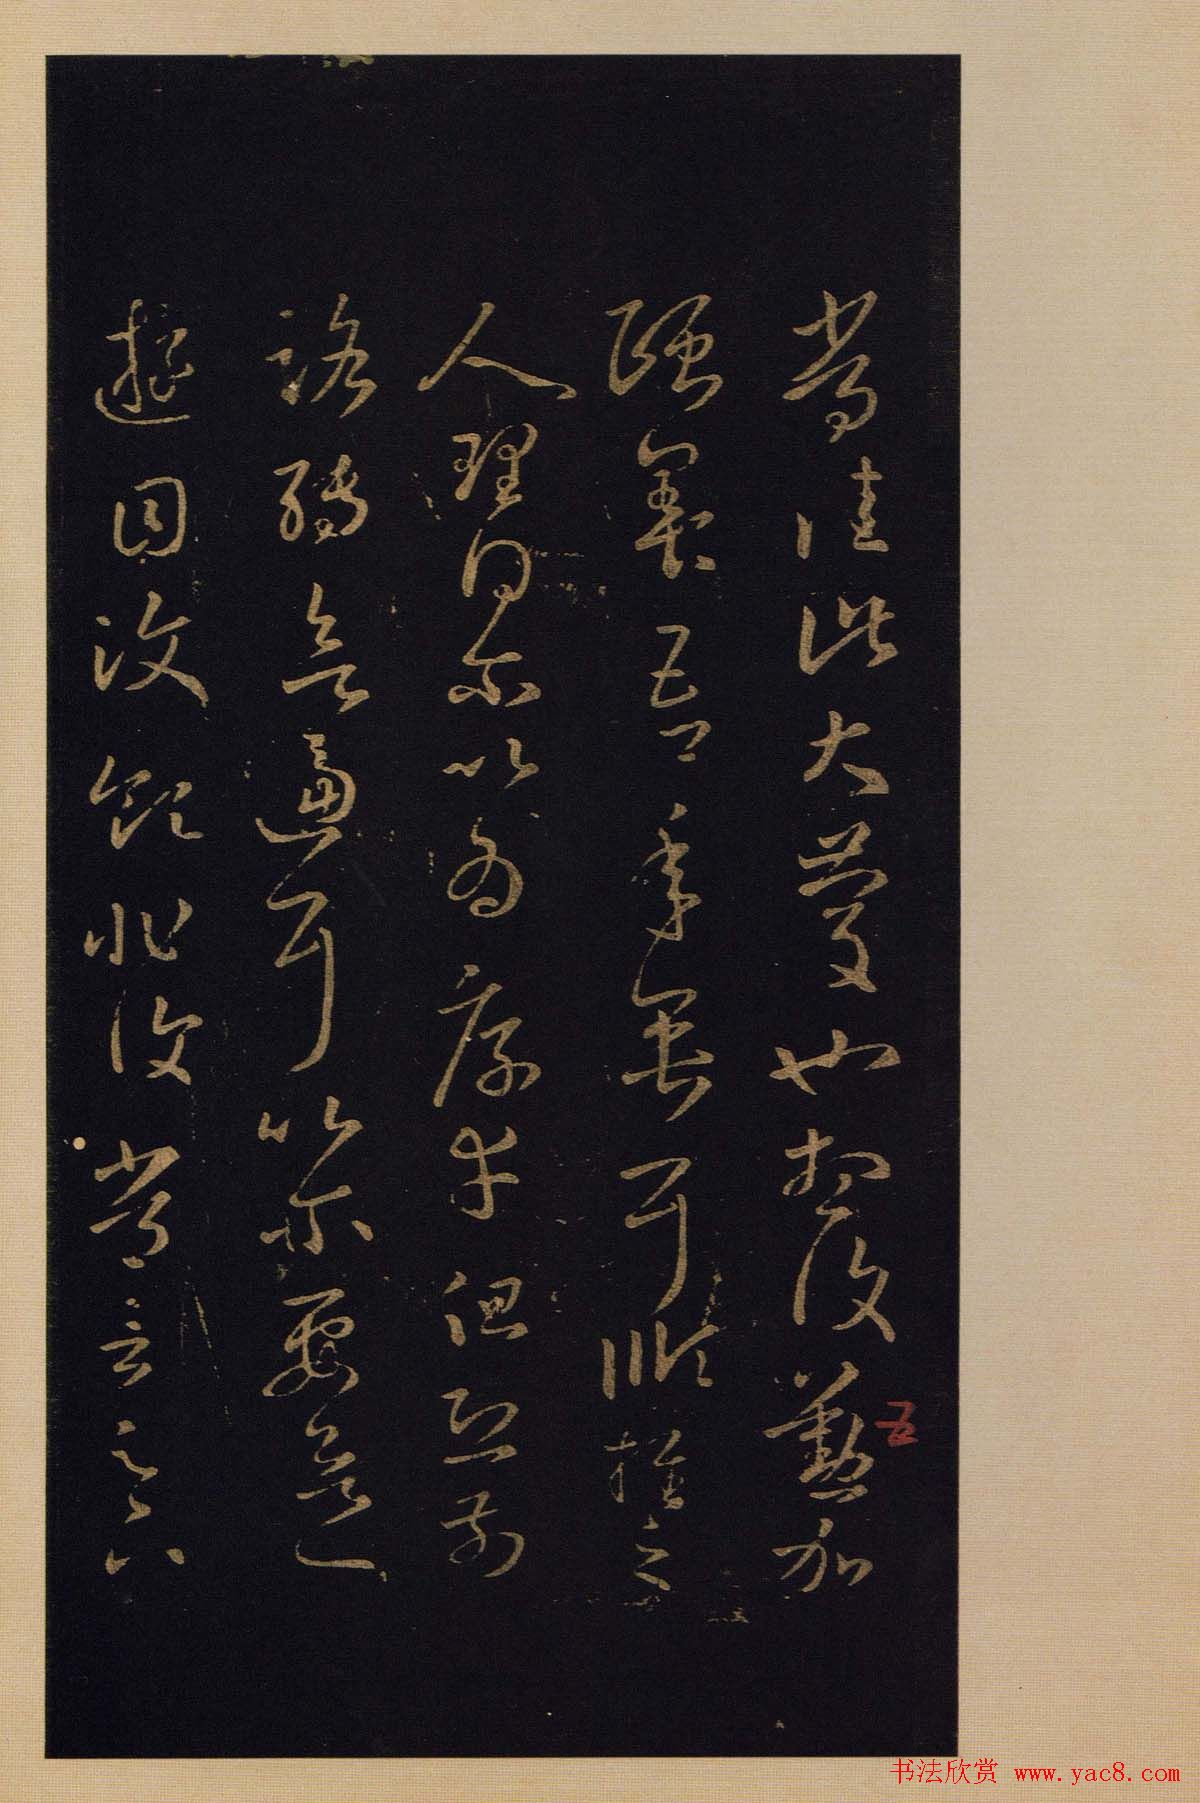 常佳此大慶也想復懃加
頤養吾年垂耳順推之
人理得尔以為厚幸但恐前
路轉欲逼耳以尔要欲一
遊目汶領非復常言足下
五
书法欣赏 www.yac8.com